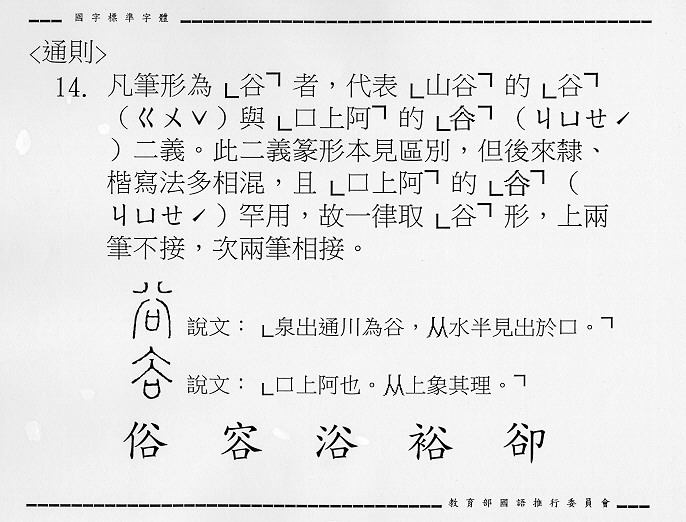 國字標準字體
<通則>
14. 凡筆形為﹂谷﹁者，代表﹂山谷﹁的﹂谷﹁
（ㄍㄨˇ）與﹂口上阿﹁的﹂𧮫﹁（ㄐㄩㄝˊ
）二義。此二義篆形本見區別，但後來隸、
楷寫法多相混，且﹂口上阿﹁的﹂𧮫﹁（
ㄐㄩㄝˊ）罕用，故一律取﹂谷﹁形，上兩
筆不接，次兩筆相接。
說文：﹂泉出通川為谷，从水半見出於口。﹁
說文：﹂口上阿也。从上象其理。﹁
俗 容 浴 裕 卻
教育部國語推行委員會